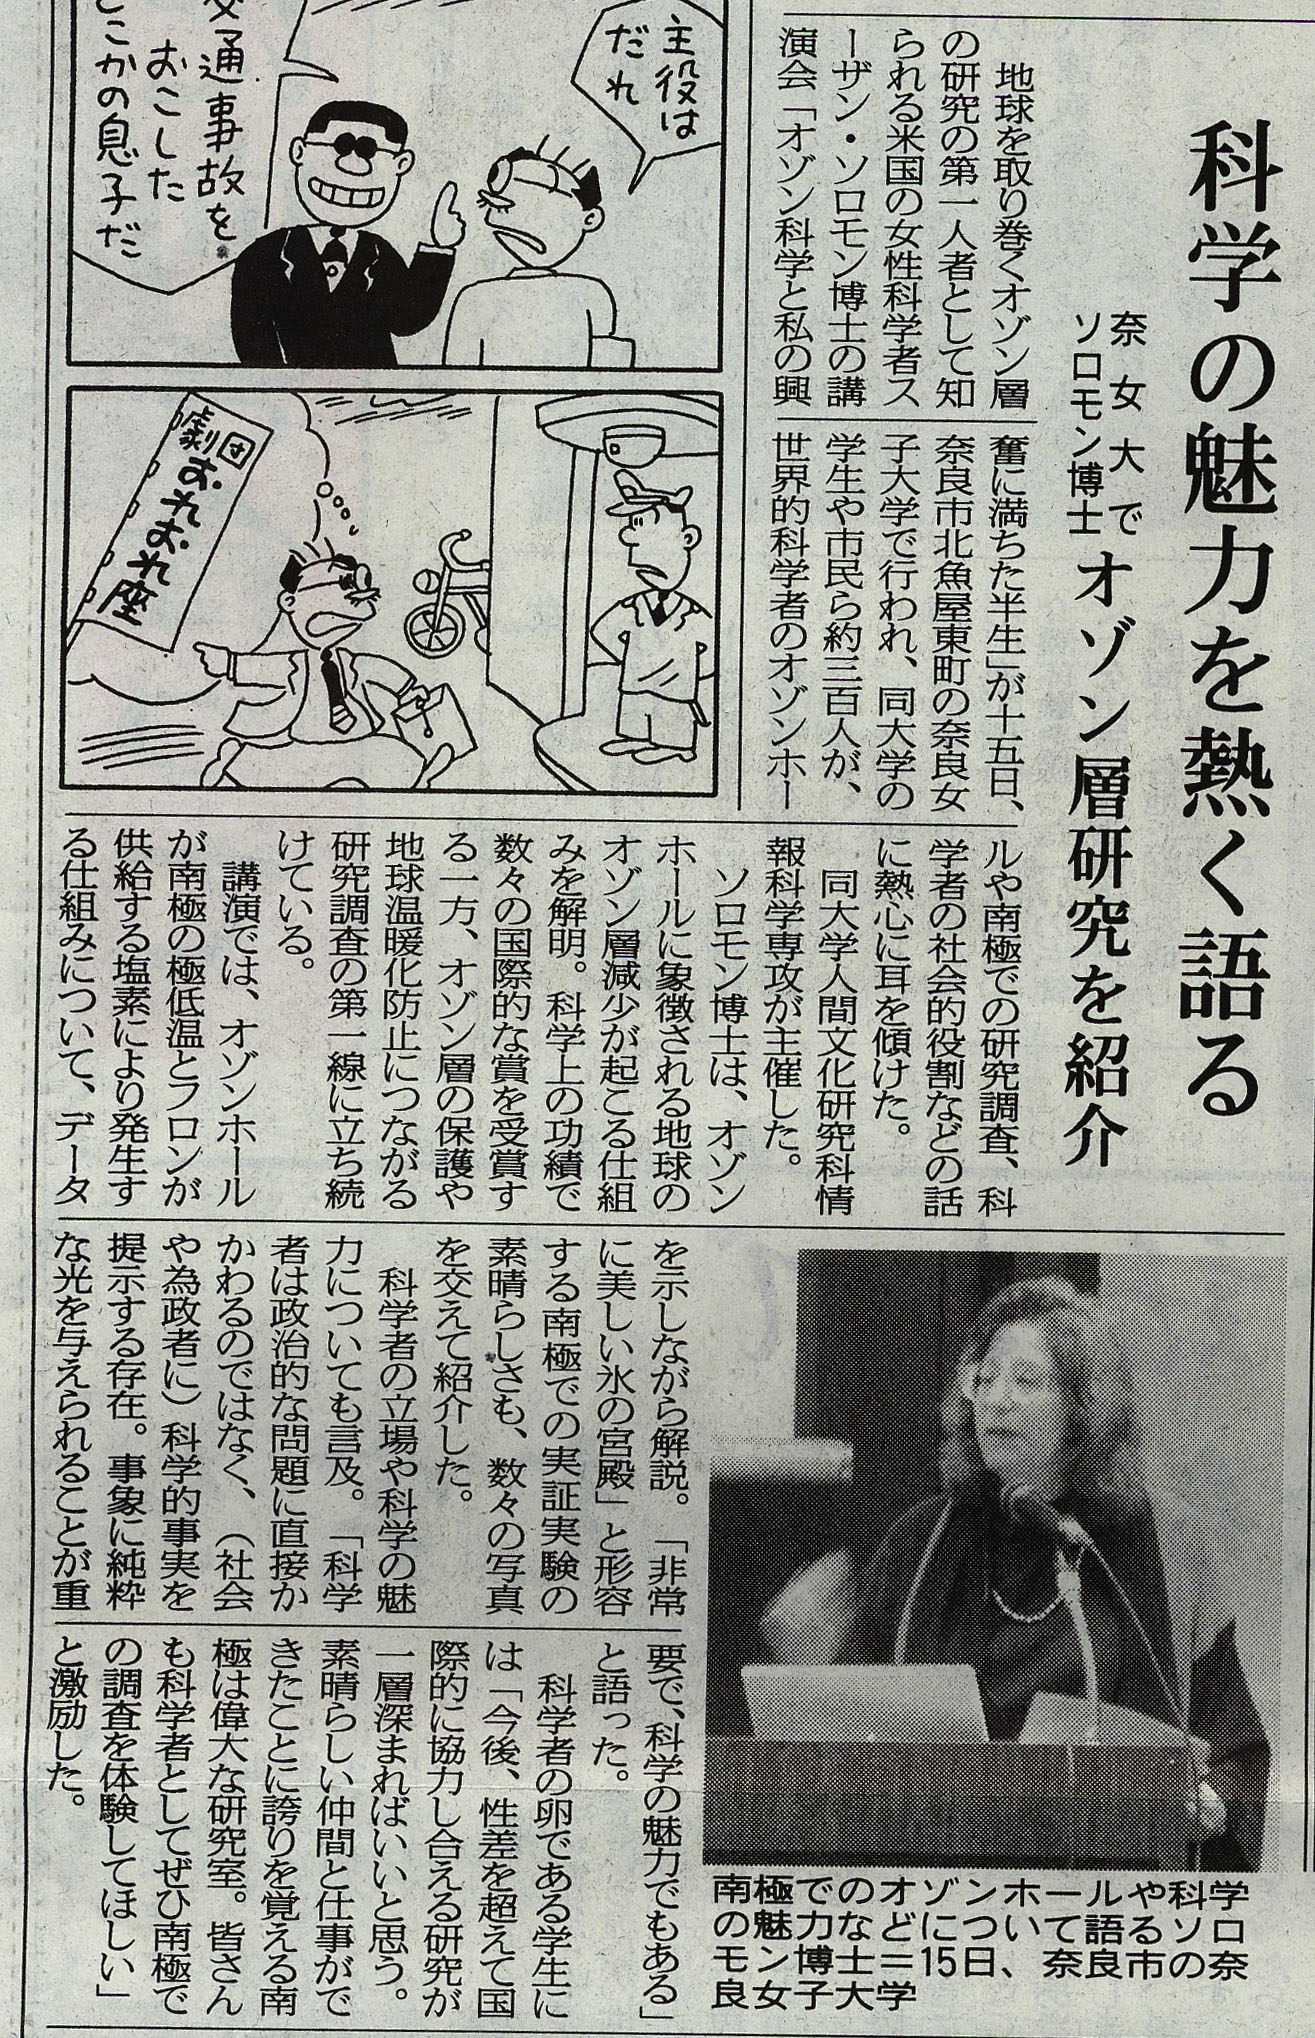 科学の魅力を熱く語る
奈女大で
ソロモン博士
オゾン層研究を紹介
地球を取り巻くオゾン層
の研究の第一人者として知
られる米国の女性科学者ス
ーザン・ソロモン博士の講
演会「オゾン科学と私の興
奮に満ちた半生」が十五日、
奈良市北魚屋東町の奈良女
子大学で行われ、同大学の
学生や市民ら約三百人が、
世界的科学者のオゾンホー
ルや南極での研究調査、科
学者の社会的役割などの話
に熱心に耳を傾けた。
同大学人間文化研究科情
報科学専攻が主催した。
ソロモン博士は、オゾン
ホールに象徴される地球の
オゾン層減少が起こる仕組
みを解明。科学上の功績で
数々の国際的な賞を受賞す
る一方、オゾン層の保護や
地球温暖化防止につながる
研究調査の第一線に立ち続
けている。
講演では、オゾンホール
が南極の極低温とフロンが
供給する塩素により発生す
る仕組みについて、データ
を示しながら解説。「非常
に美しい氷の宮殿」と形容
する南極での実証実験の
素晴らしさも、数々の写真
を交えて紹介した。
科学者の立場や科学の魅
力についても言及。「科学
者は政治的な問題に直接か
かわるのではなく、（社会
や為政者に）科学的事実を
提示する存在。事象に純粋
な光を与えられることが重
要で、科学の魅力でもある」
と語った。
科学者の卵である学生に
は「今後、性差を超えて国
際的に協力し合える研究が
一層深まればいいと思う。
素晴らしい仲間と仕事がで
きたことに誇りを覚える南
極は偉大な研究室。皆さん
も科学者としてぜひ南極で
の調査を体験してほしい」
と激励した。
南極でのオゾンホールや科学
の魅力などについて語るソロ
モン博士＝15日、奈良市の奈
良女子大学
主役は
だれ
交通事故を
おこした
どこかの息子だ
劇団
おれおれ座